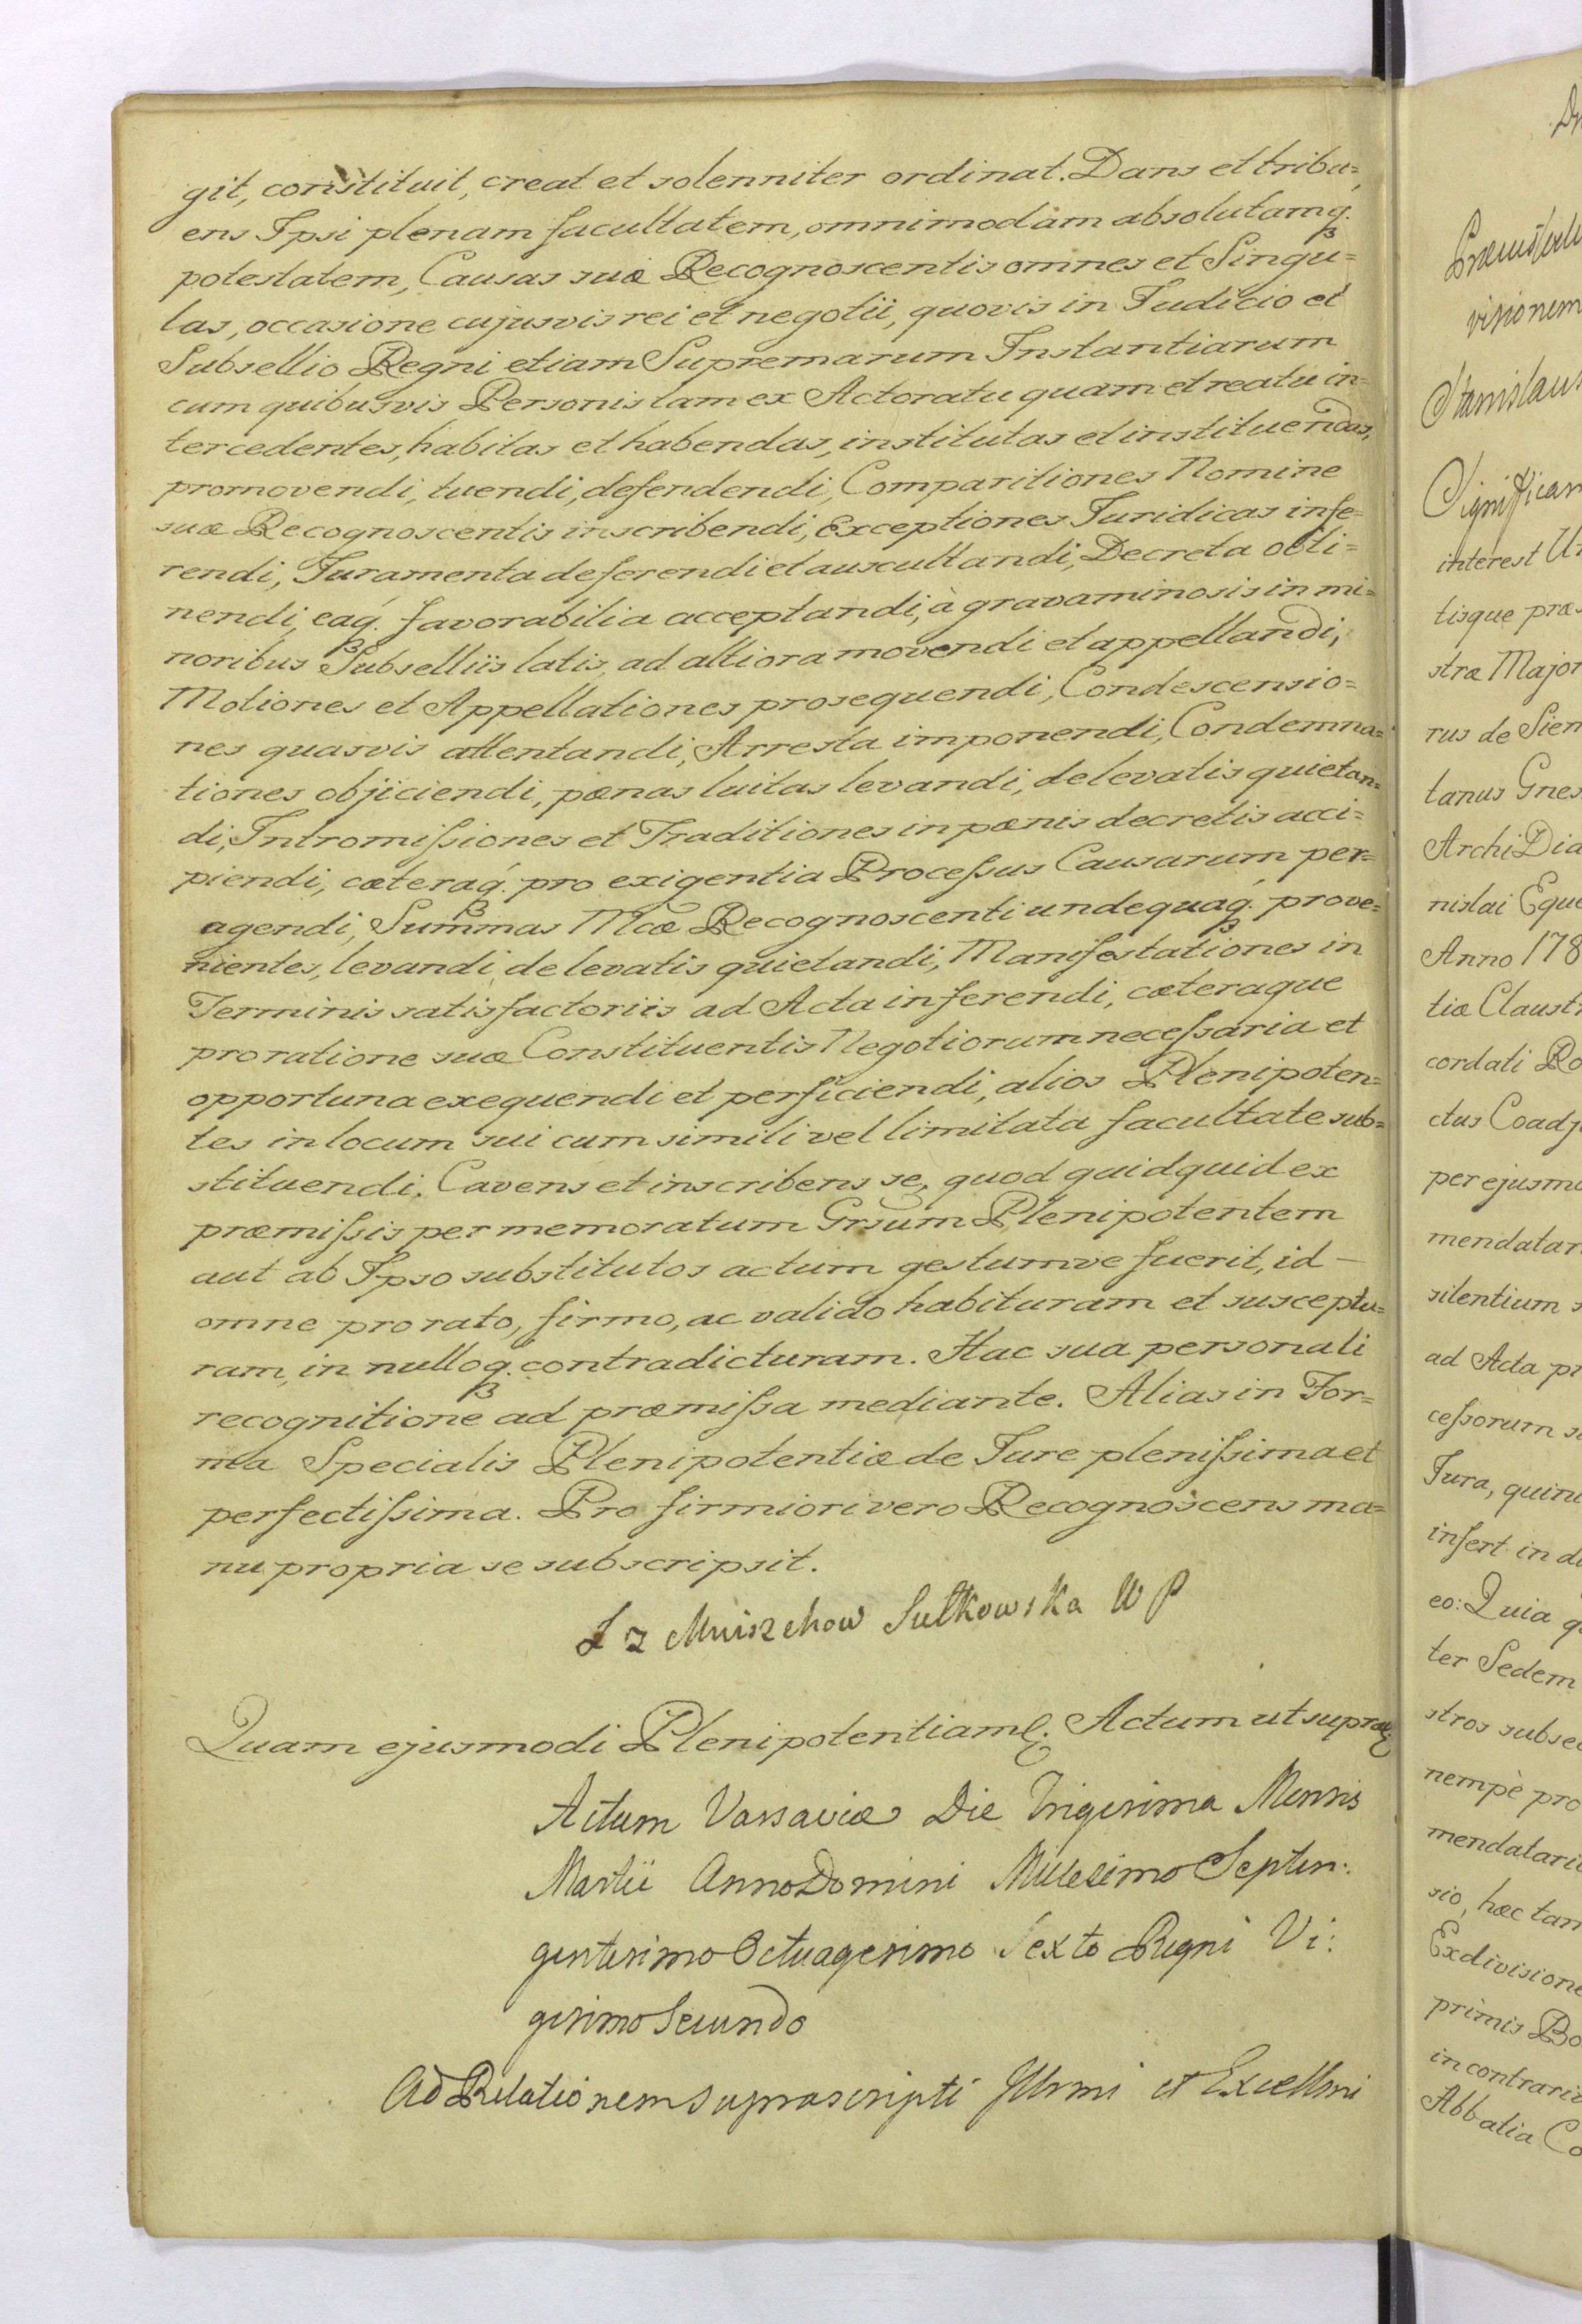 git, constituit, creat et solenniter ordinat. Dans et tribu=
ens Ipsi plenam facultatem, omnimodam absolutamq.
potestatem, Causas suæ Recognoscentis omnes et Singu=
las, occasione cujusvis rei et negotii, quovis in Judicio et
Subsellio Regni etiam Supremarum Instantiarum
cum quibusvis Personis tam ex Actoratu quam et reatu in=
tercedentes, habitas et habendas, institutas et instituendas,
promovendi, tuendi, defendendi, Comparitiones Nomine
suæ Recognoscentis inscribendi, Exceptiones Juridicas infe=
rendi, Juramenta deferendi et auscultandi, Decreta obti=
nendi, eaq. favorabilia acceptandi, à gravaminosis in mi=
noribus Subselliis latis, ad altiora movendi et appellandi,
Motiones et Appellationes prosequendi, Condescensio=
nes quasvis attentandi, Arresta imponendi, Condemna=
tiones objiciendi, pœnas luitas levandi, de levatis quietan=
di, Intromißiones et Traditiones in pœnis decretis acci=
piendi, cæteraq. pro exigentia Proceßus Causarum per=
agendi, Summas Mcæ Recognoscenti undequaq. prove=
nientes, levandi, de levatis quietandi, Manifestationes in
Terminis satisfactoriis ad Acta inferendi, cæteraque
pro ratione suæ Constituentis Negotiorum neceßaria et
opportuna exequendi et perficiendi, alios Plenipoten=
tes in locum sui cum simili vel limitata facultate sub=
stituendi. Cavens et inscribens se, quod quidquid ex
præmißis per memoratum Grsum Plenipotentem
aut ab Ipso substitutos actum gestumve fuerit, id —
omne pro rato, firmo, ac valido habituram et susceptu=
ram, in nulloq. contradicturam. Hac sua personali
recognitione ad præmißa mediante. Alias in For=
ma Specialis Plenipotentiæ de Jure plenißima et
perfectißima. Pro firmiori vero Recognoscens ma=
nu propria se subscripsit.
L z Mniszchow Sułkowska W P
Quam ejusmodi Plenipotentiam &. Actum ut supra &
Actum Varsaviæ Die Trigesima Mensis
Martii Anno Domini Millesimo Septin:
gentesimo Octuagesimo Sexto Regni Vi:
gesimo Secundo
Ad Relationem suprascripti Illrmi et Excellmi
visionem
Stanislaus
interest
tisque
stræ Major
rus de Sien
tanus Gnes
ArchiDia
nislai Eque
Anno 178
tiæ Claust
cordati Ro
ctus Coadj
per ejusmo
mendatar
silentium s
ad Acta pr
ceßorum
Jura,
infert in
eo: Quia
ter Sedem
stros subse
nempè pro
mendatari
sio, hæc tam
Exdivisione
primis Bo
in contrari
Abbatia Co